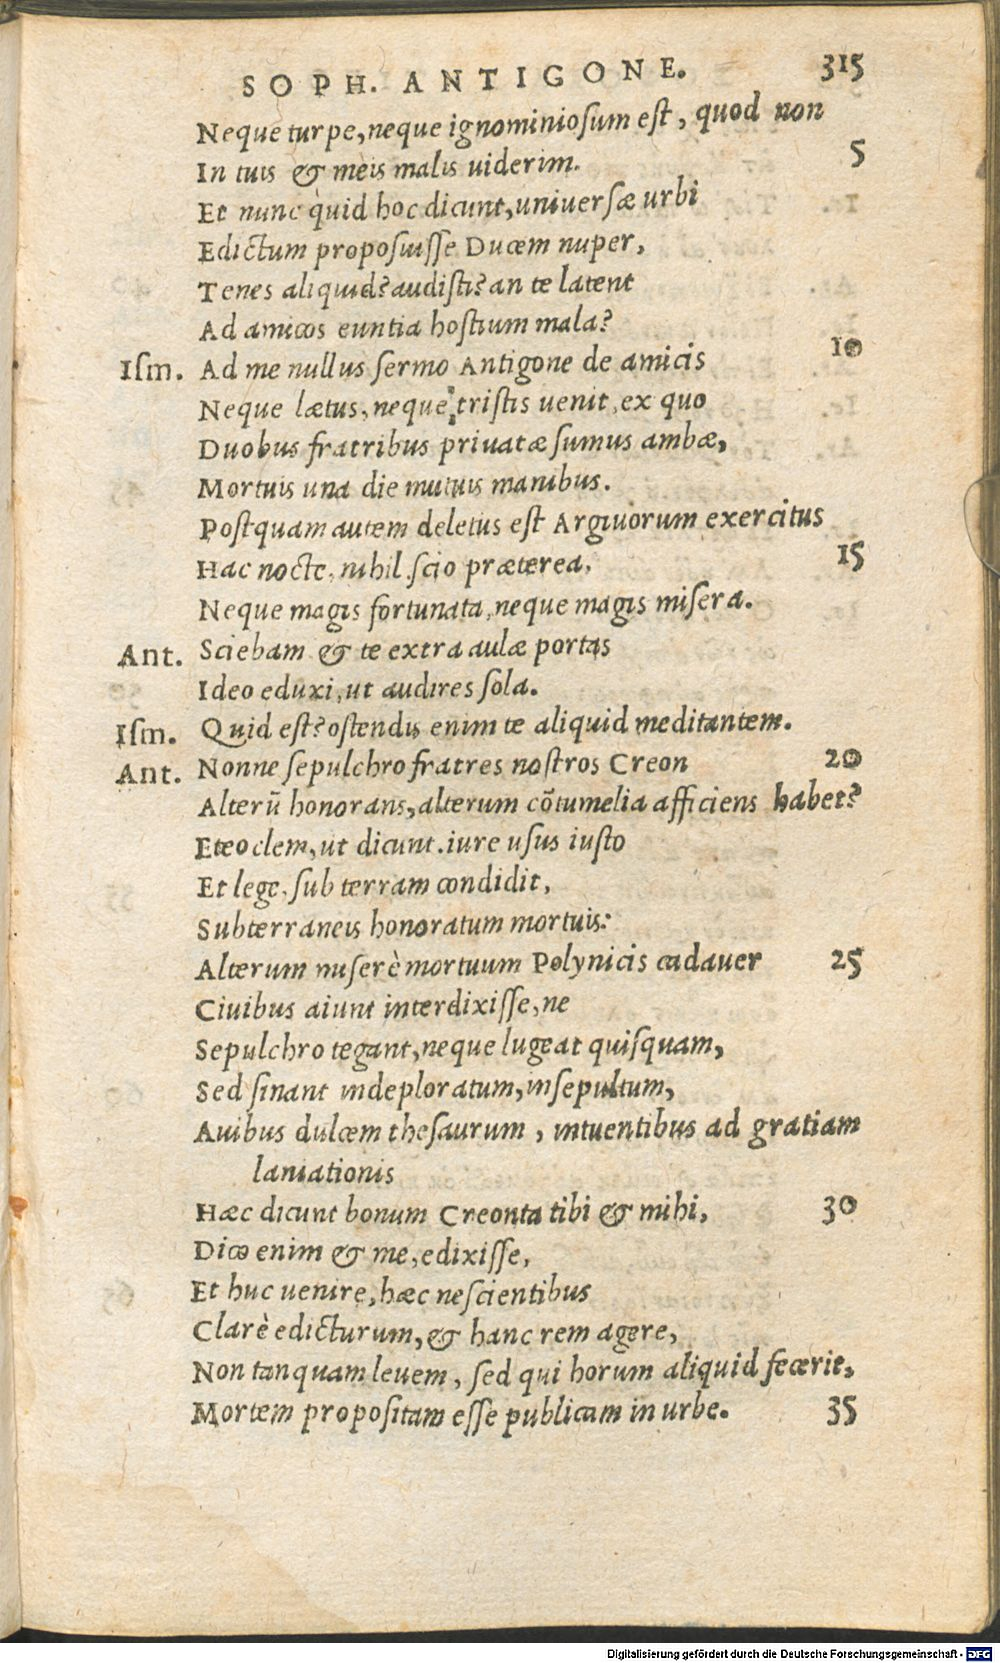 SOPH. ANTIGONE. 315
Neque turpe, neque ignominiosum est, quod non
In tuis & meis malis uiderim. 5
Et nunc quid hoc dicunt, uniuersæ urbi
Edictum proposuisse Ducem nuper,
Tenes aliquid? audisti? an te latent
Ad amicos euntia hostium mala?
Ism. Ad me nullus sermo Antigone de amicis 10
Neque lætus, neque tristis uenit, ex quo
Duobus fratribus priuatæ sumus ambæ,
Mortuis una die mutuis manibus.
Postquam autem deletus est Argiuorum exercitus
Hac nocte, nihil scio præterea, 15
Neque magis fortunata, neque magis misera.
Ant. Sciebam & te extra aulæ portas
Ideo eduxi, ut audires sola.
Ism. Quid est? ostendis enim te aliquid meditantem.
Ant. Nonne sepulchro fratres nostros Creon 20
Alterũ honorans, alterum cõtumelia afficiens habet?
Eteoclem, ut dicunt. iure usus iusto
Et lege, sub terram condidit,
Subterraneis honoratum mortuis:
Alterum miserè mortuum Polynicis cadauer 25
Ciuibus aiunt interdixisse, ne
Sepulchro tegant, neque lugeat quisquam,
Sed sinant indeploratum, insepultum,
Auibus dulcem thesaurum, intuentibus ad gratiam
laniationis
Hæc dicunt bonum Creonta tibi & mihi, 30
Dico enim & me, edixisse,
Et huc uenire, hæc nescientibus
Clarè edicturum, & hanc rem agere,
Non tanquam leuem, sed qui horum aliquid fecerit,
Mortem propositam esse publicam in urbe. 35
Digitalisierung gefördert durch die Deutsche Forschungsgemeinschaft - DFG